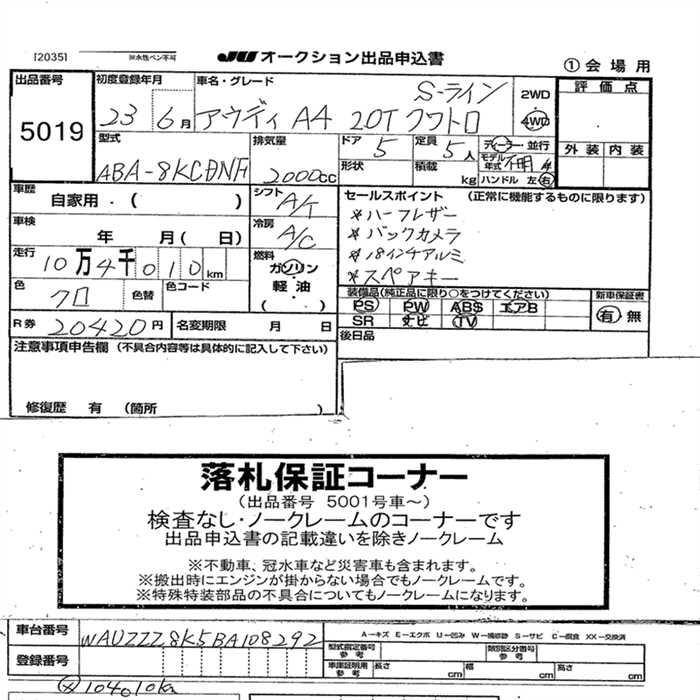 [2035] ※水性ペン不可 JU オークション出品申込書 ①会場用
出品番号 初度登録年月 車名・グレード S-ライン 2WD 評価点
5019 23 6月 アウディ A4 20T クワトロ 4WD
型式 排気量 ドア 定員 ディーラー・並行 外装 内装
ABA-8KCDNF 2000cc 5 5人 モデル年式 不明 年
形状 積載 kg ハンドル 左 右
車歴 自家用・( ) シフト A/T セールスポイント (正常に機能するものに限ります)
※ハーフレザー
車検 年 月(日) 冷房 A/C ※バックカメラ
※18インチアルミ
走行 10万4千010km 燃料 ガソリン 軽油・( ) ※スペアキー
色 クロ 色替 色コード 装備品(純正品に限り○をつけてください) 新車保証書
PS PW ABS エアB 有 無
R券 20420円 名変期限 月 日 SR ナビ TV
注意事項申告欄 (不具合内容等は具体的に記入して下さい) 後日品
修復歴 有 (箇所 )
落札保証コーナー
(出品番号 5001号車~)
検査なし・ノークレームのコーナーです
出品申込書の記載違いを除きノークレーム
※不動車、冠水車など災害車も含まれます。
※搬出時にエンジンが掛からない場合でもノークレームです。
※特殊特装部品の不具合についてもノークレームになります。
車台番号 WAUZZZ8K5BA108292 A-キズ E-エクボ U-凹み W-補修跡 S-サビ C-腐食 XX-交換済
型式指定番号 参考 類別区分番号 参考
登録番号 車庫証明用 参考 長さ cm 幅 cm 高さ cm
104010km